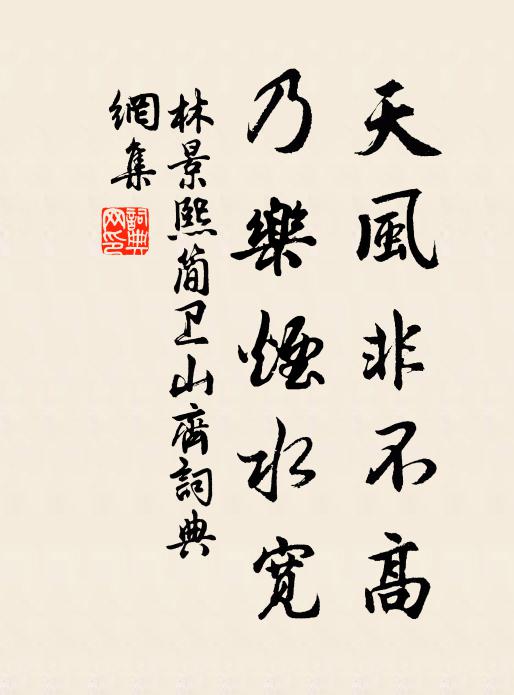 天風非不高
乃樂煙水宽
林景熙简卫山齊詞典
網集
詞典
网印